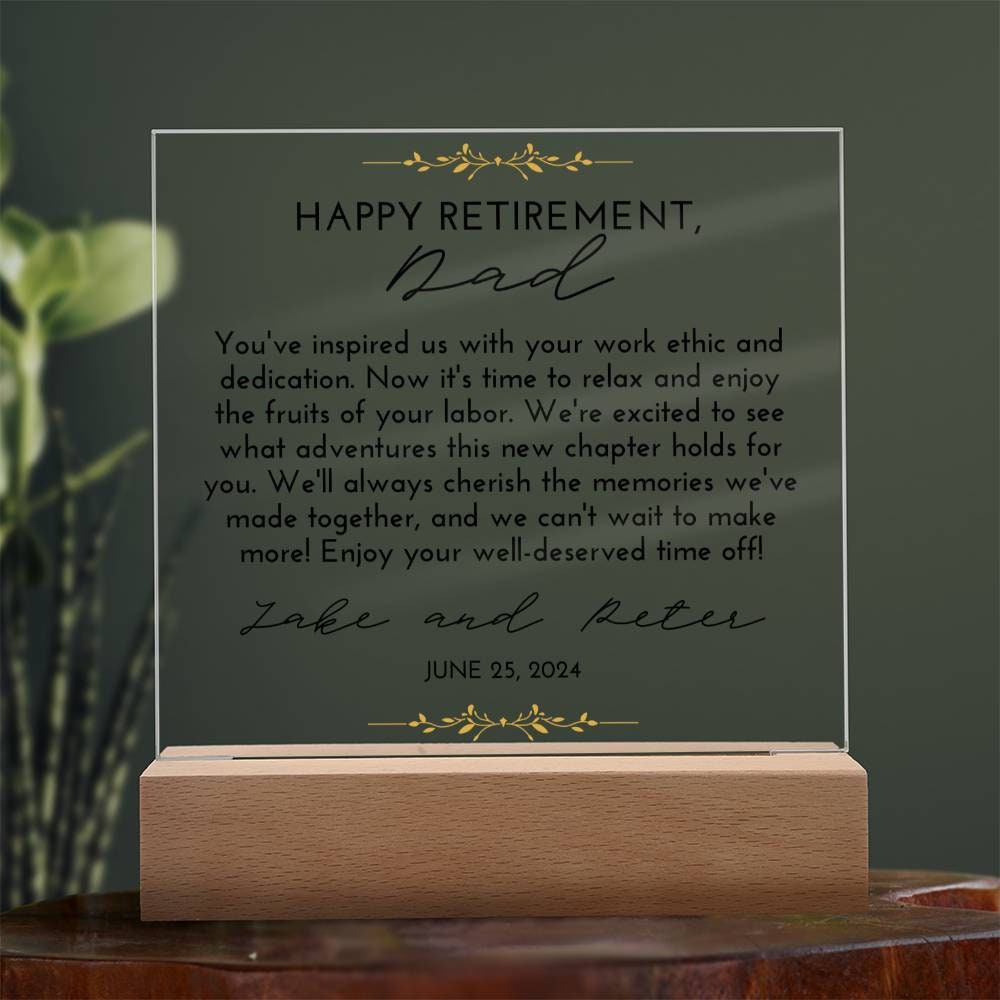 HAPPY RETIREMENT,
Dad
You've inspired us with your work ethic and
dedication. Now it's time to relax and enjoy
the fruits of your labor. We're excited to see
what adventures this new chapter holds for
you. We'll always cherish the memories we've
made together, and we can't wait to make
more! Enjoy your well-deserved time off!
Jake and Peter
JUNE 25, 2024